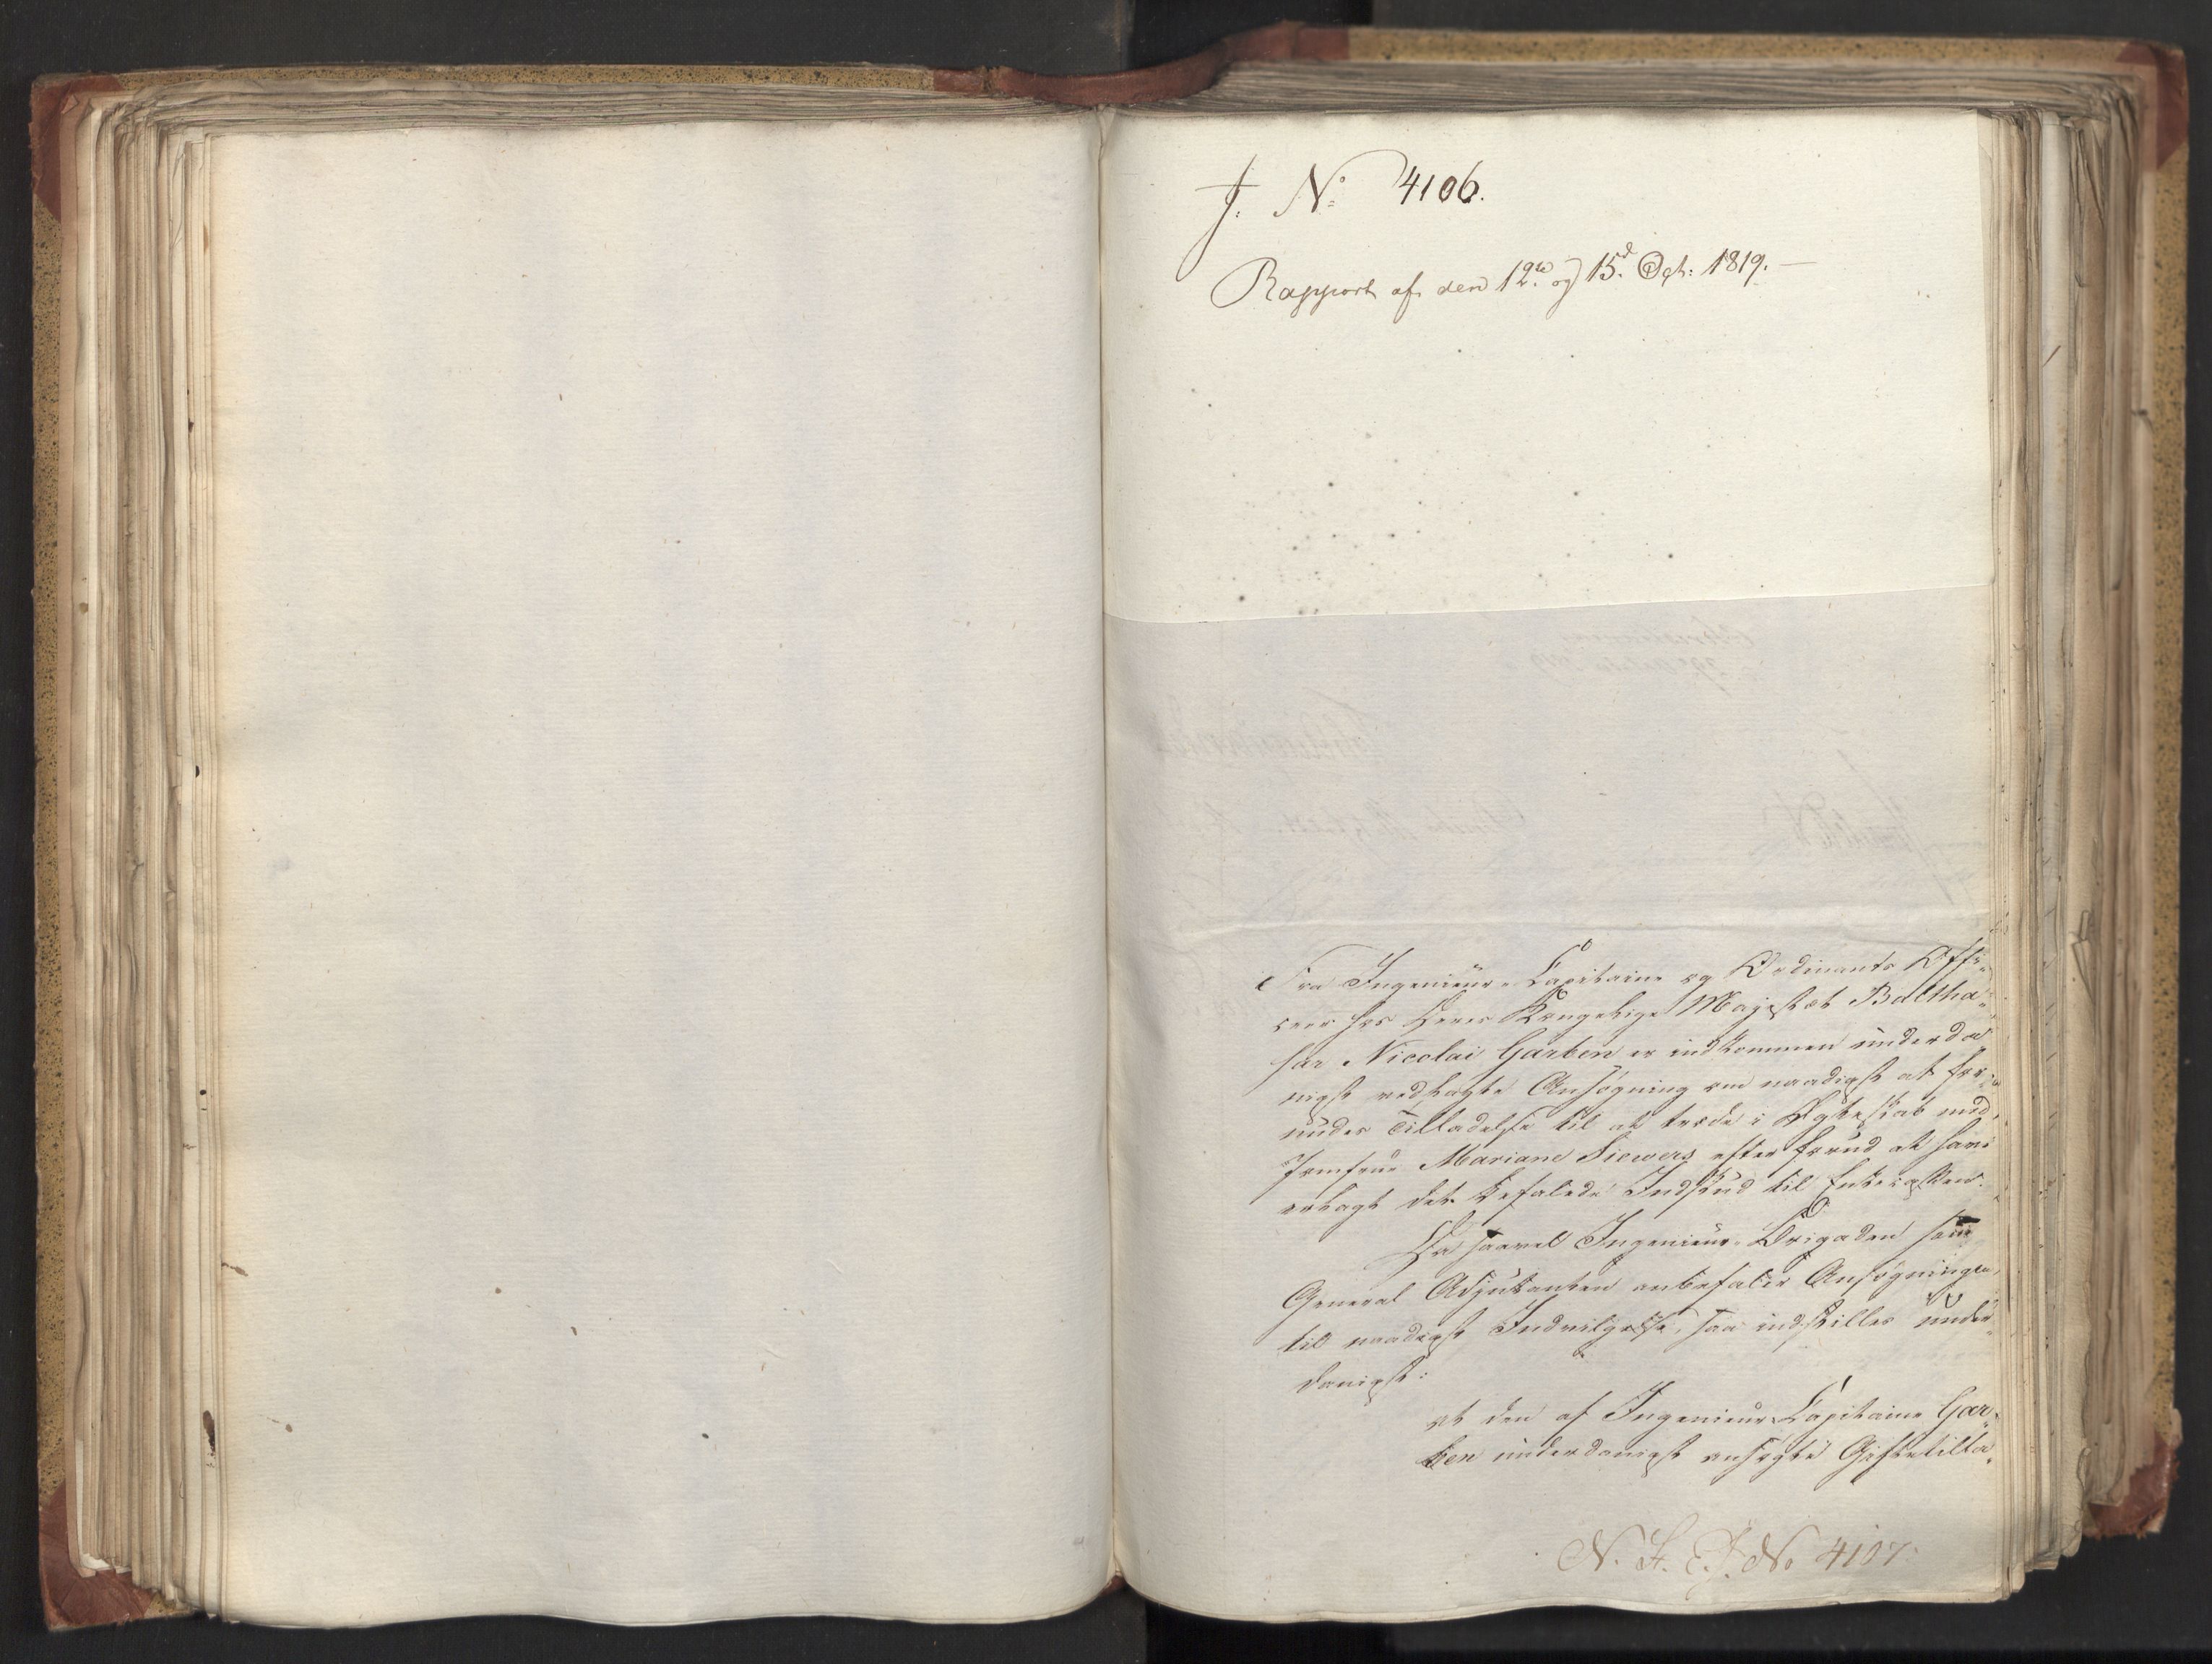 J. No 4106.
Rapport af den 12te og 15d. Oct: 1819. —
Fra Ingenieur-Capitaine og Ordinants Offi-
ceer hos Deres Kongelige Majestæt Baltha-
sar Nicolai Garben er indkommen underda-
nigst vedlagte Ansøgning om naadigst at for-
undes Tilladelse til at træde i Ægteskab med
Jomfrue Mariane Siewers efter forud at have
erlagt det befalede Indskud til Enkecassen.
Da saavel Ingenieur-Brigaden som
General Adjutanten anbefaler Ansøgningen
til naadigst Indvilgelse, saa indstilles under-
danigst:
at den af Ingenieur Capitaine Gar-
ben underdanigst ansøgte Giftetilla-
N. F. E. J. No 4107.